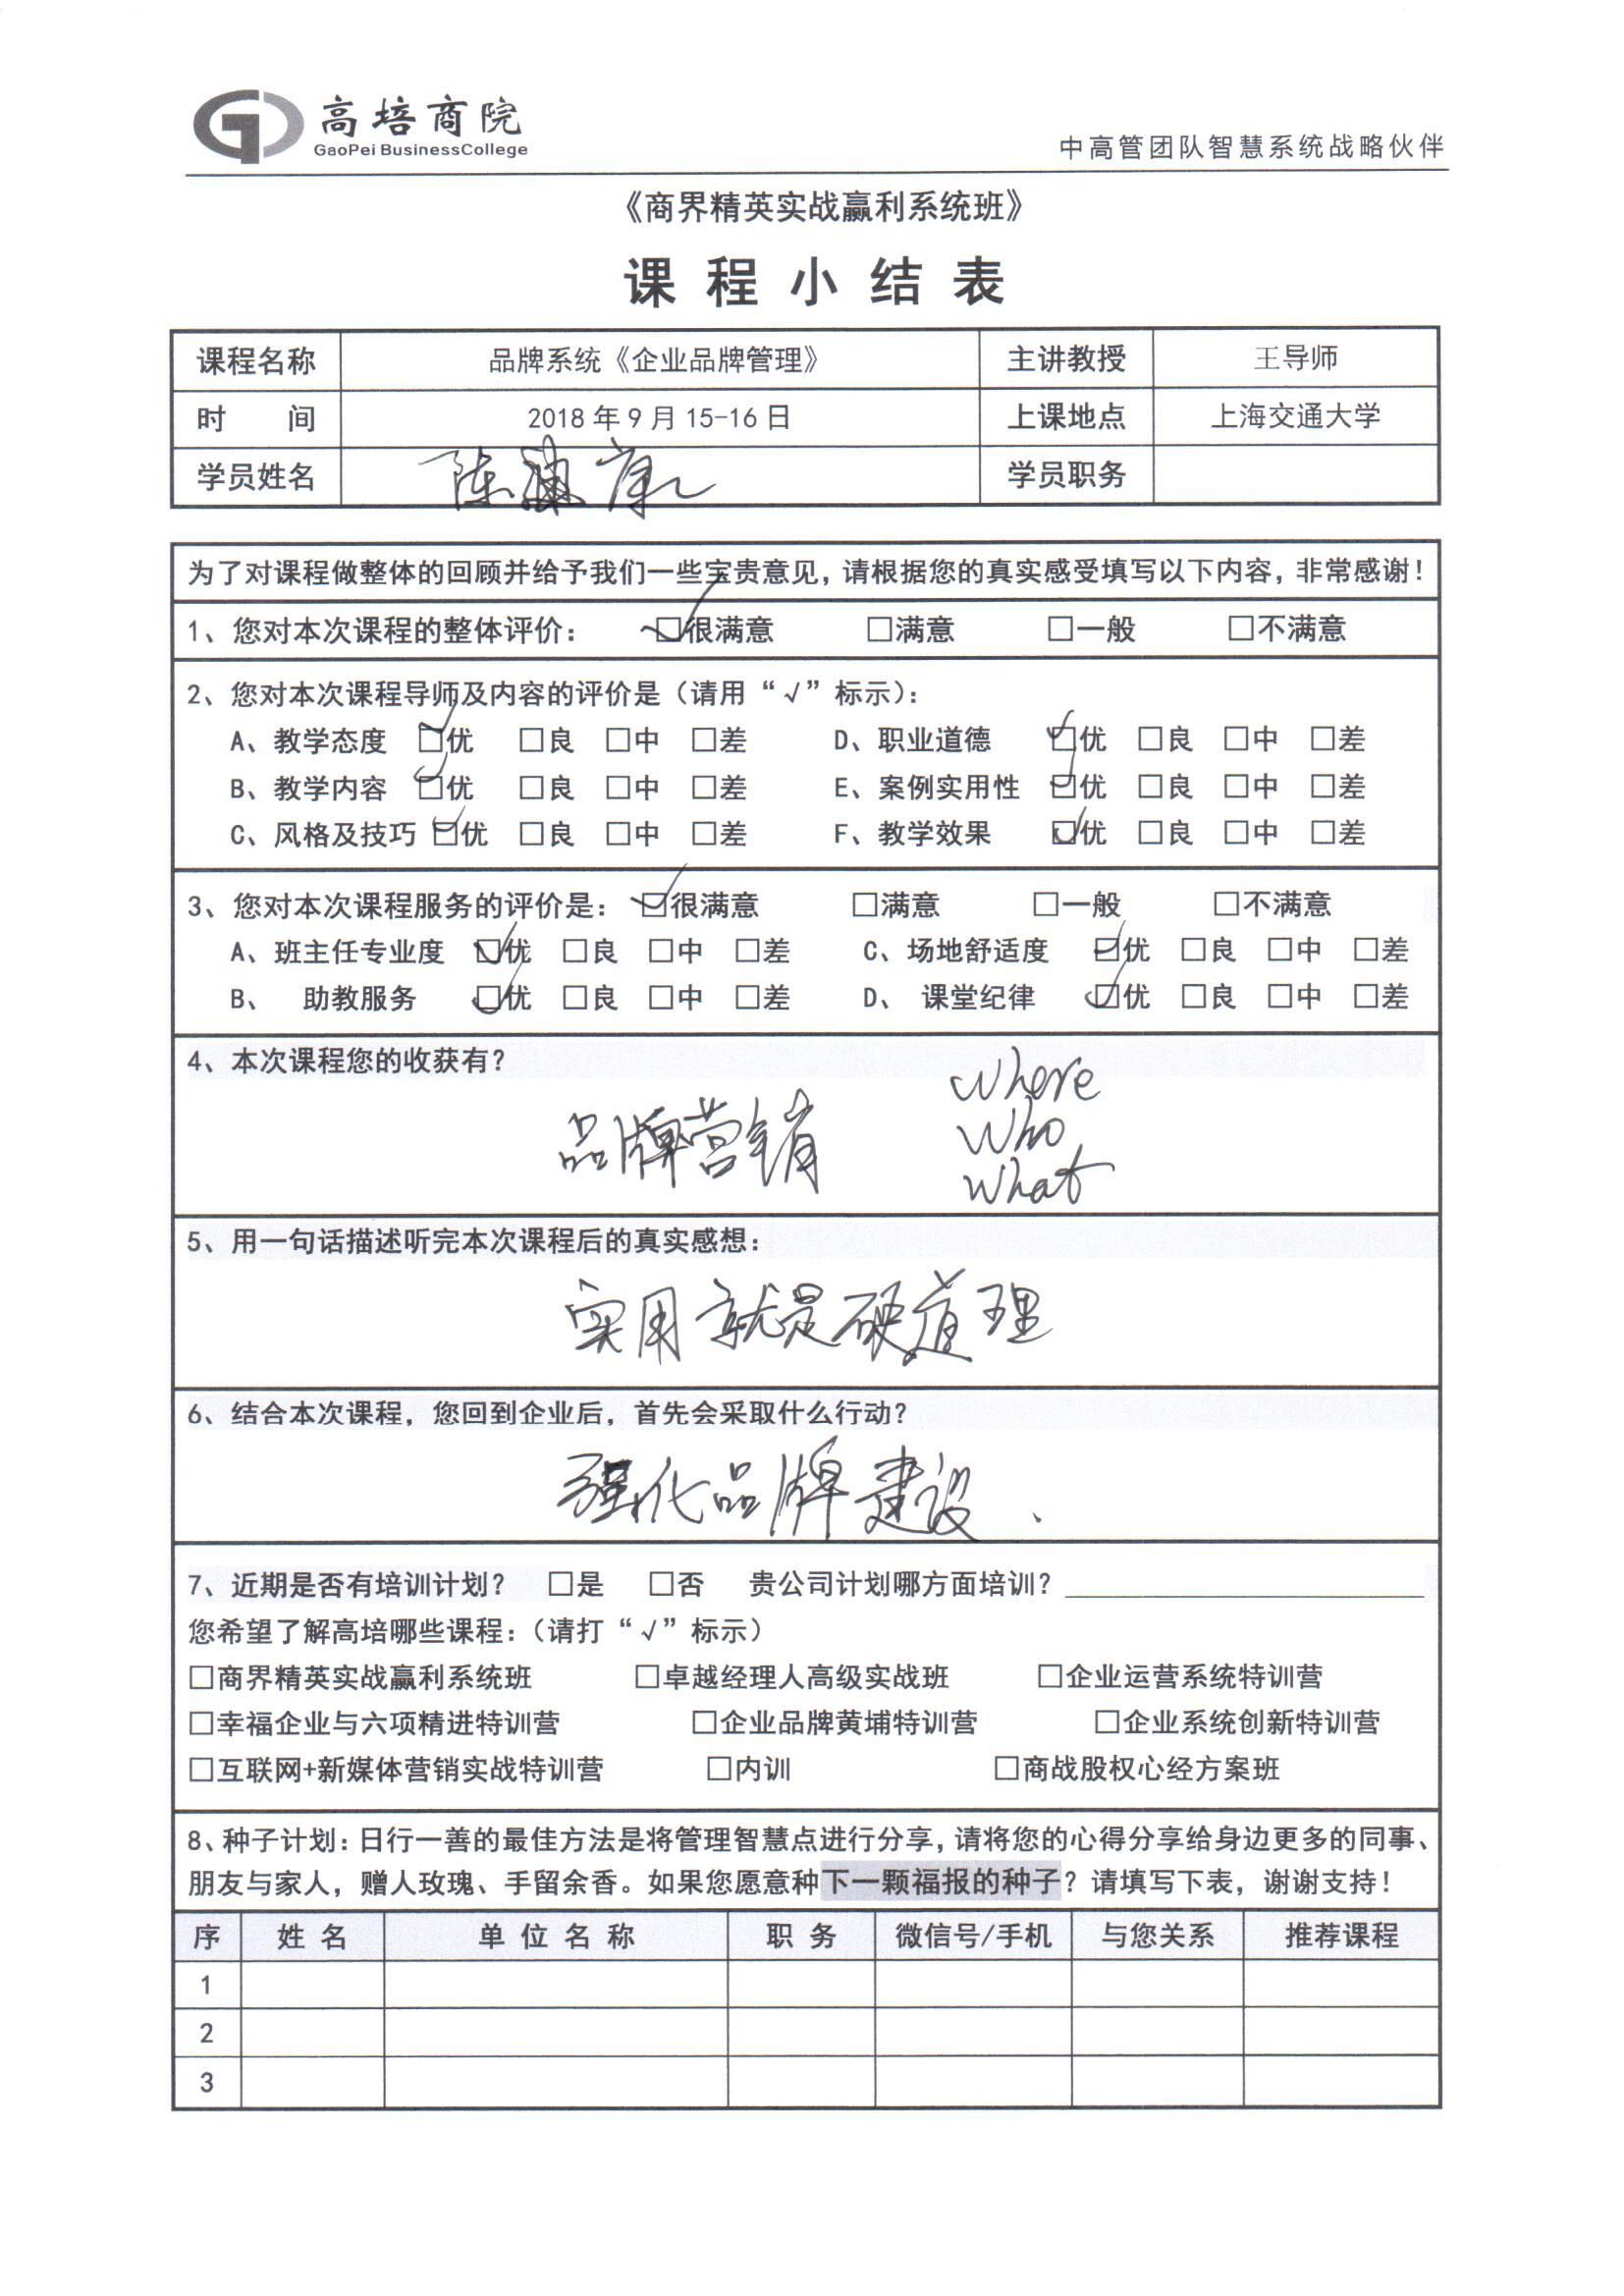 高培商院
GaoPei BusinessCollege
中高管团队智慧系统战略伙伴
《商界精英实战赢利系统班》
课程小结表
课程名称 品牌系统《企业品牌管理》 主讲教授 王导师
时 间 2018年9月15-16日 上课地点 上海交通大学
学员姓名 陈 学员职务
为了对课程做整体的回顾并给予我们一些宝贵意见，请根据您的真实感受填写以下内容，非常感谢！
1、您对本次课程的整体评价： ☑很满意 □满意 □一般 □不满意
2、您对本次课程导师及内容的评价是（请用“√”标示）：
A、教学态度 ☑优 □良 □中 □差 D、职业道德 ☑优 □良 □中 □差
B、教学内容 ☑优 □良 □中 □差 E、案例实用性 ☑优 □良 □中 □差
C、风格及技巧 ☑优 □良 □中 □差 F、教学效果 ☑优 □良 □中 □差
3、您对本次课程服务的评价是： ☑很满意 □满意 □一般 □不满意
A、班主任专业度 ☑优 □良 □中 □差 C、场地舒适度 ☑优 □良 □中 □差
B、 助教服务 ☑优 □良 □中 □差 D、 课堂纪律 ☑优 □良 □中 □差
4、本次课程您的收获有？
品牌营销
Where
Who
What
5、用一句话描述听完本次课程后的真实感想：
实用就是硬道理
6、结合本次课程，您回到企业后，首先会采取什么行动？
强化品牌建设、
7、近期是否有培训计划？ □是 □否 贵公司计划哪方面培训？
您希望了解高培哪些课程：（请打“√”标示）
□商界精英实战赢利系统班 □卓越经理人高级实战班 □企业运营系统特训营
□幸福企业与六项精进特训营 □企业品牌黄埔特训营 □企业系统创新特训营
□互联网+新媒体营销实战特训营 □内训 □商战股权心经方案班
8、种子计划：日行一善的最佳方法是将管理智慧点进行分享，请将您的心得分享给身边更多的同事、
朋友与家人，赠人玫瑰、手留余香。如果您愿意种下一颗福报的种子？请填写下表，谢谢支持！
序 姓名 单位名称 职务 微信号/手机 与您关系 推荐课程
1
2
3